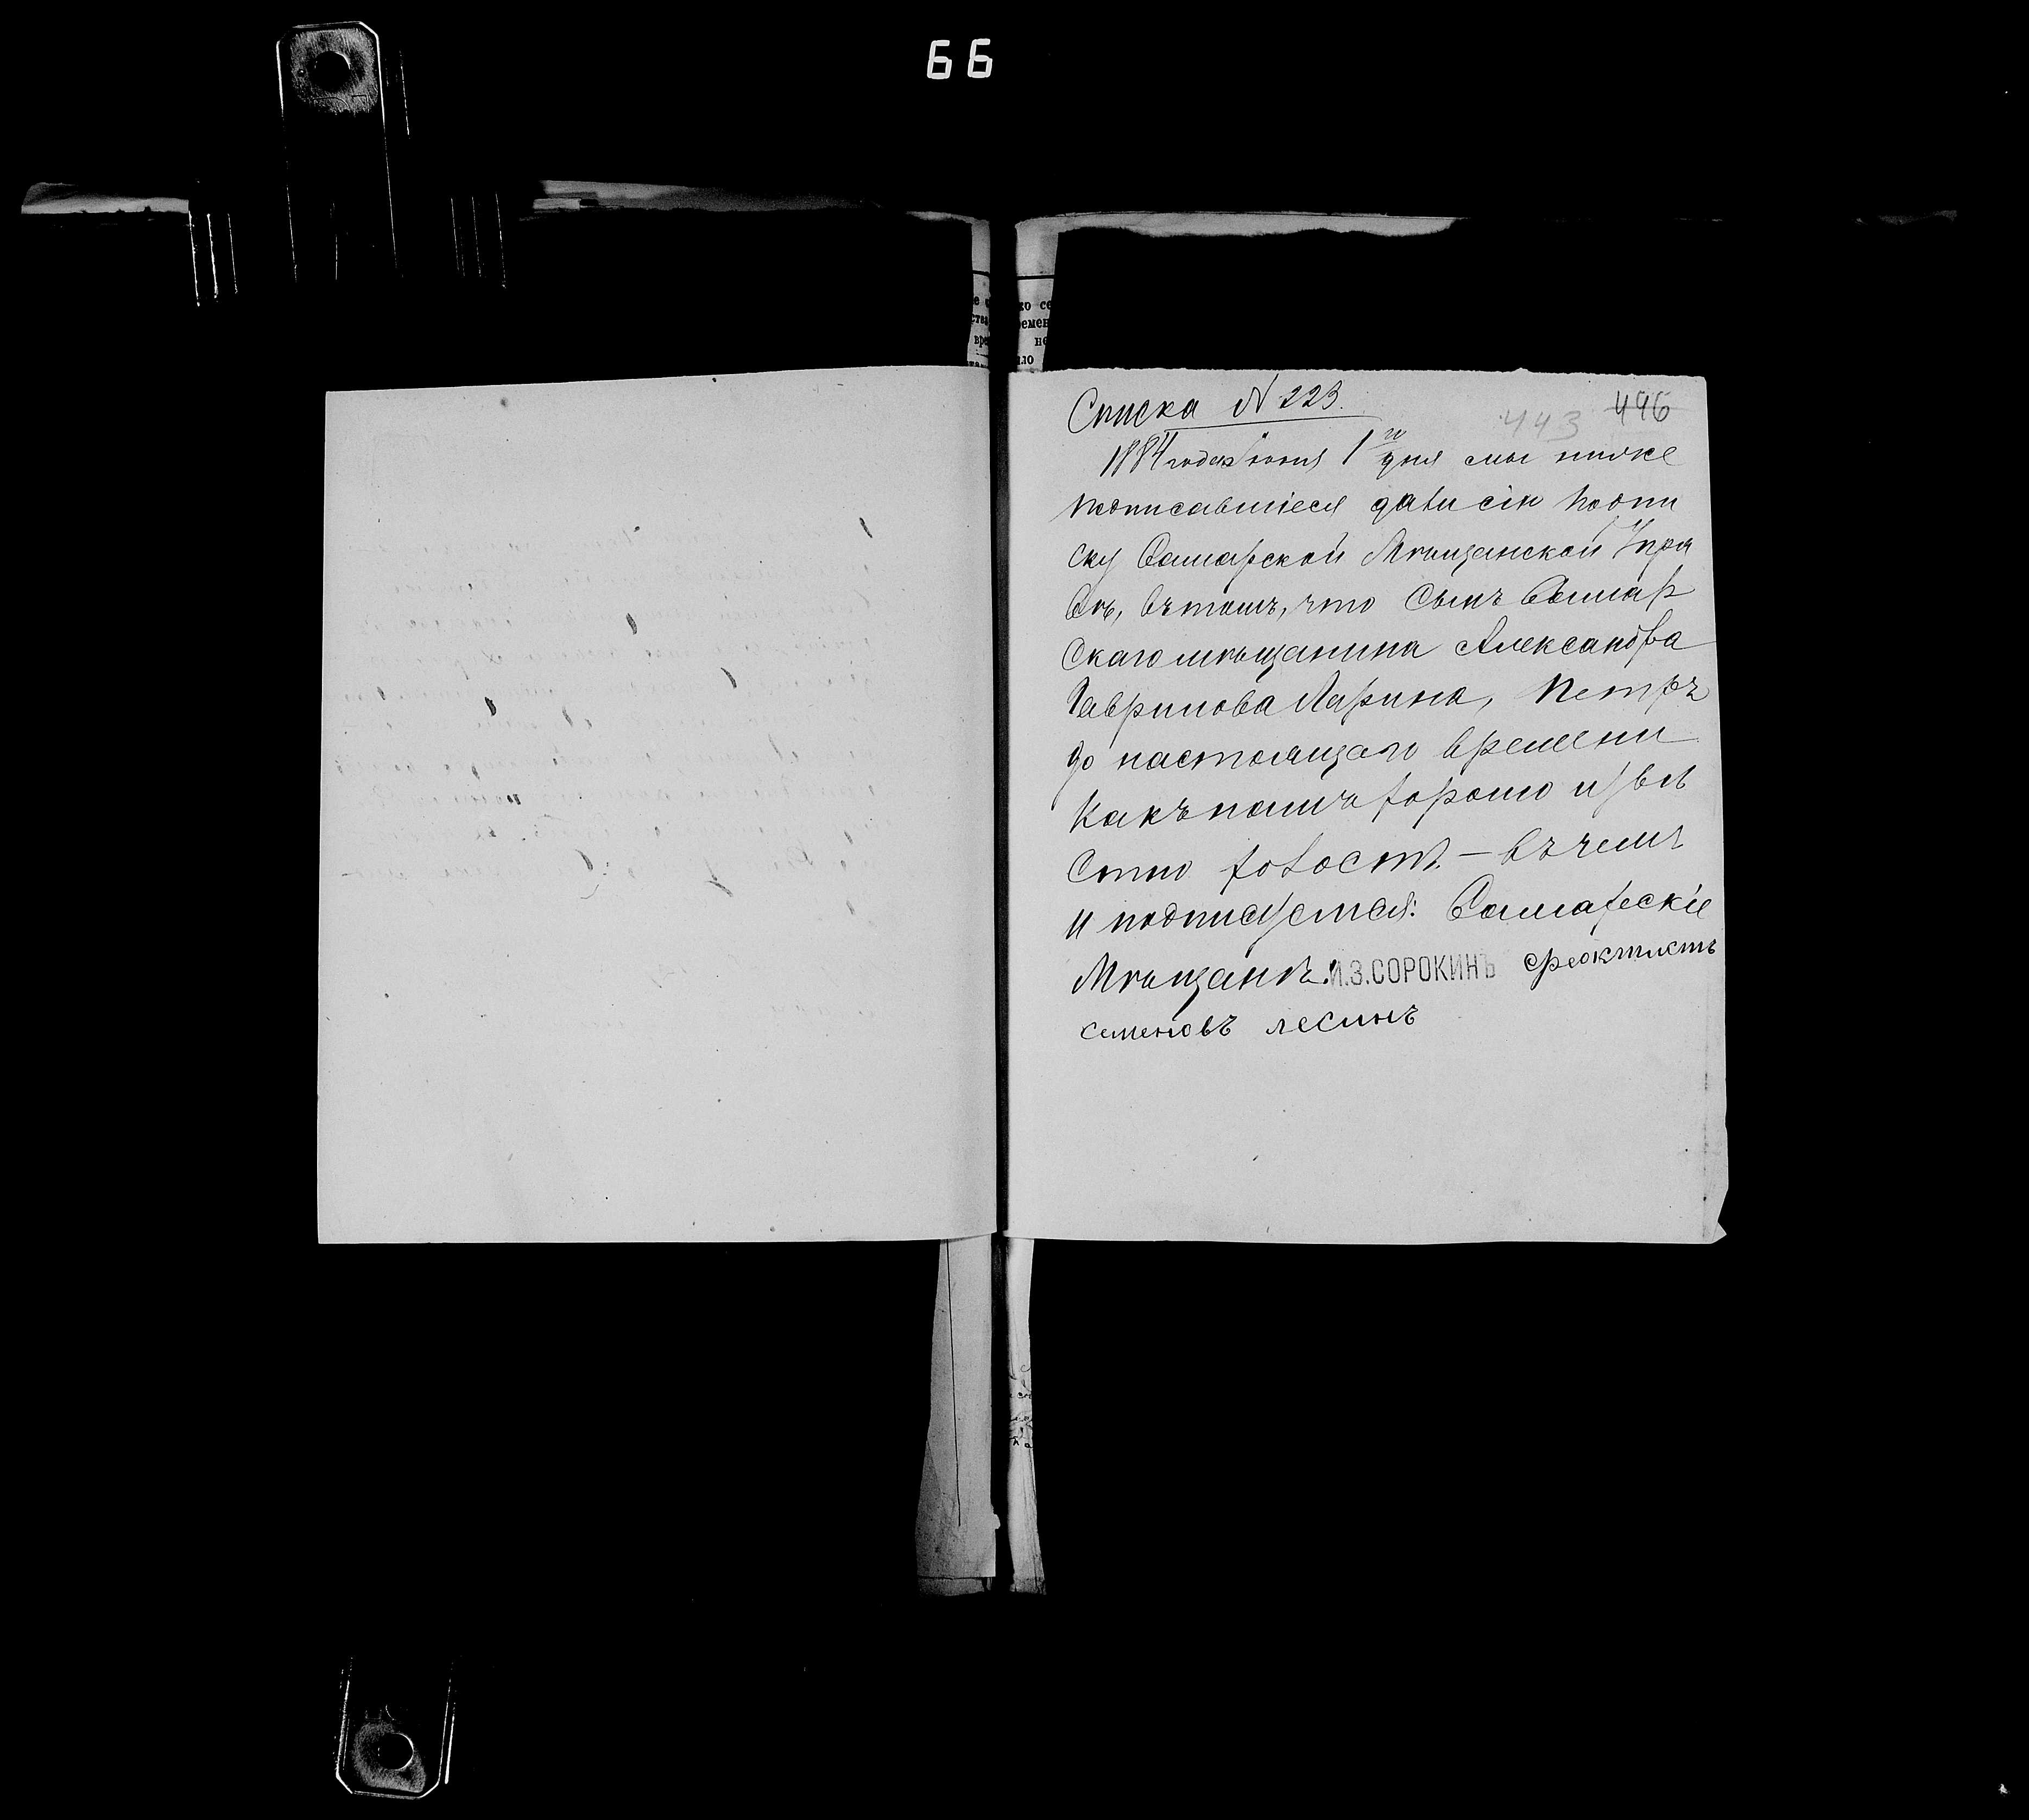 66
Списка № 223.
443 496
1884 года Июня 1го дня мы ниже
подписавшіеся дали сію подпи
ску Самарской Мѣщанской Упра
вѣ, въ томъ, что Сынъ Самар
скаго мѣщанина Александра
Гаврилова Ларина, Петръ
до настоящаго времени
какъ намъ хорошо извѣ
стно холостъ. — въ чемъ
и подписуемся: Самарскіе
Мѣщанѣ: И.З.СОРОКИНЪ Феоктистъ
семеновъ лесинъ